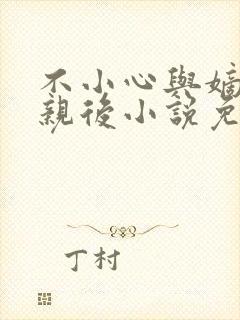 不小心與嫡
親後小說免
丁村